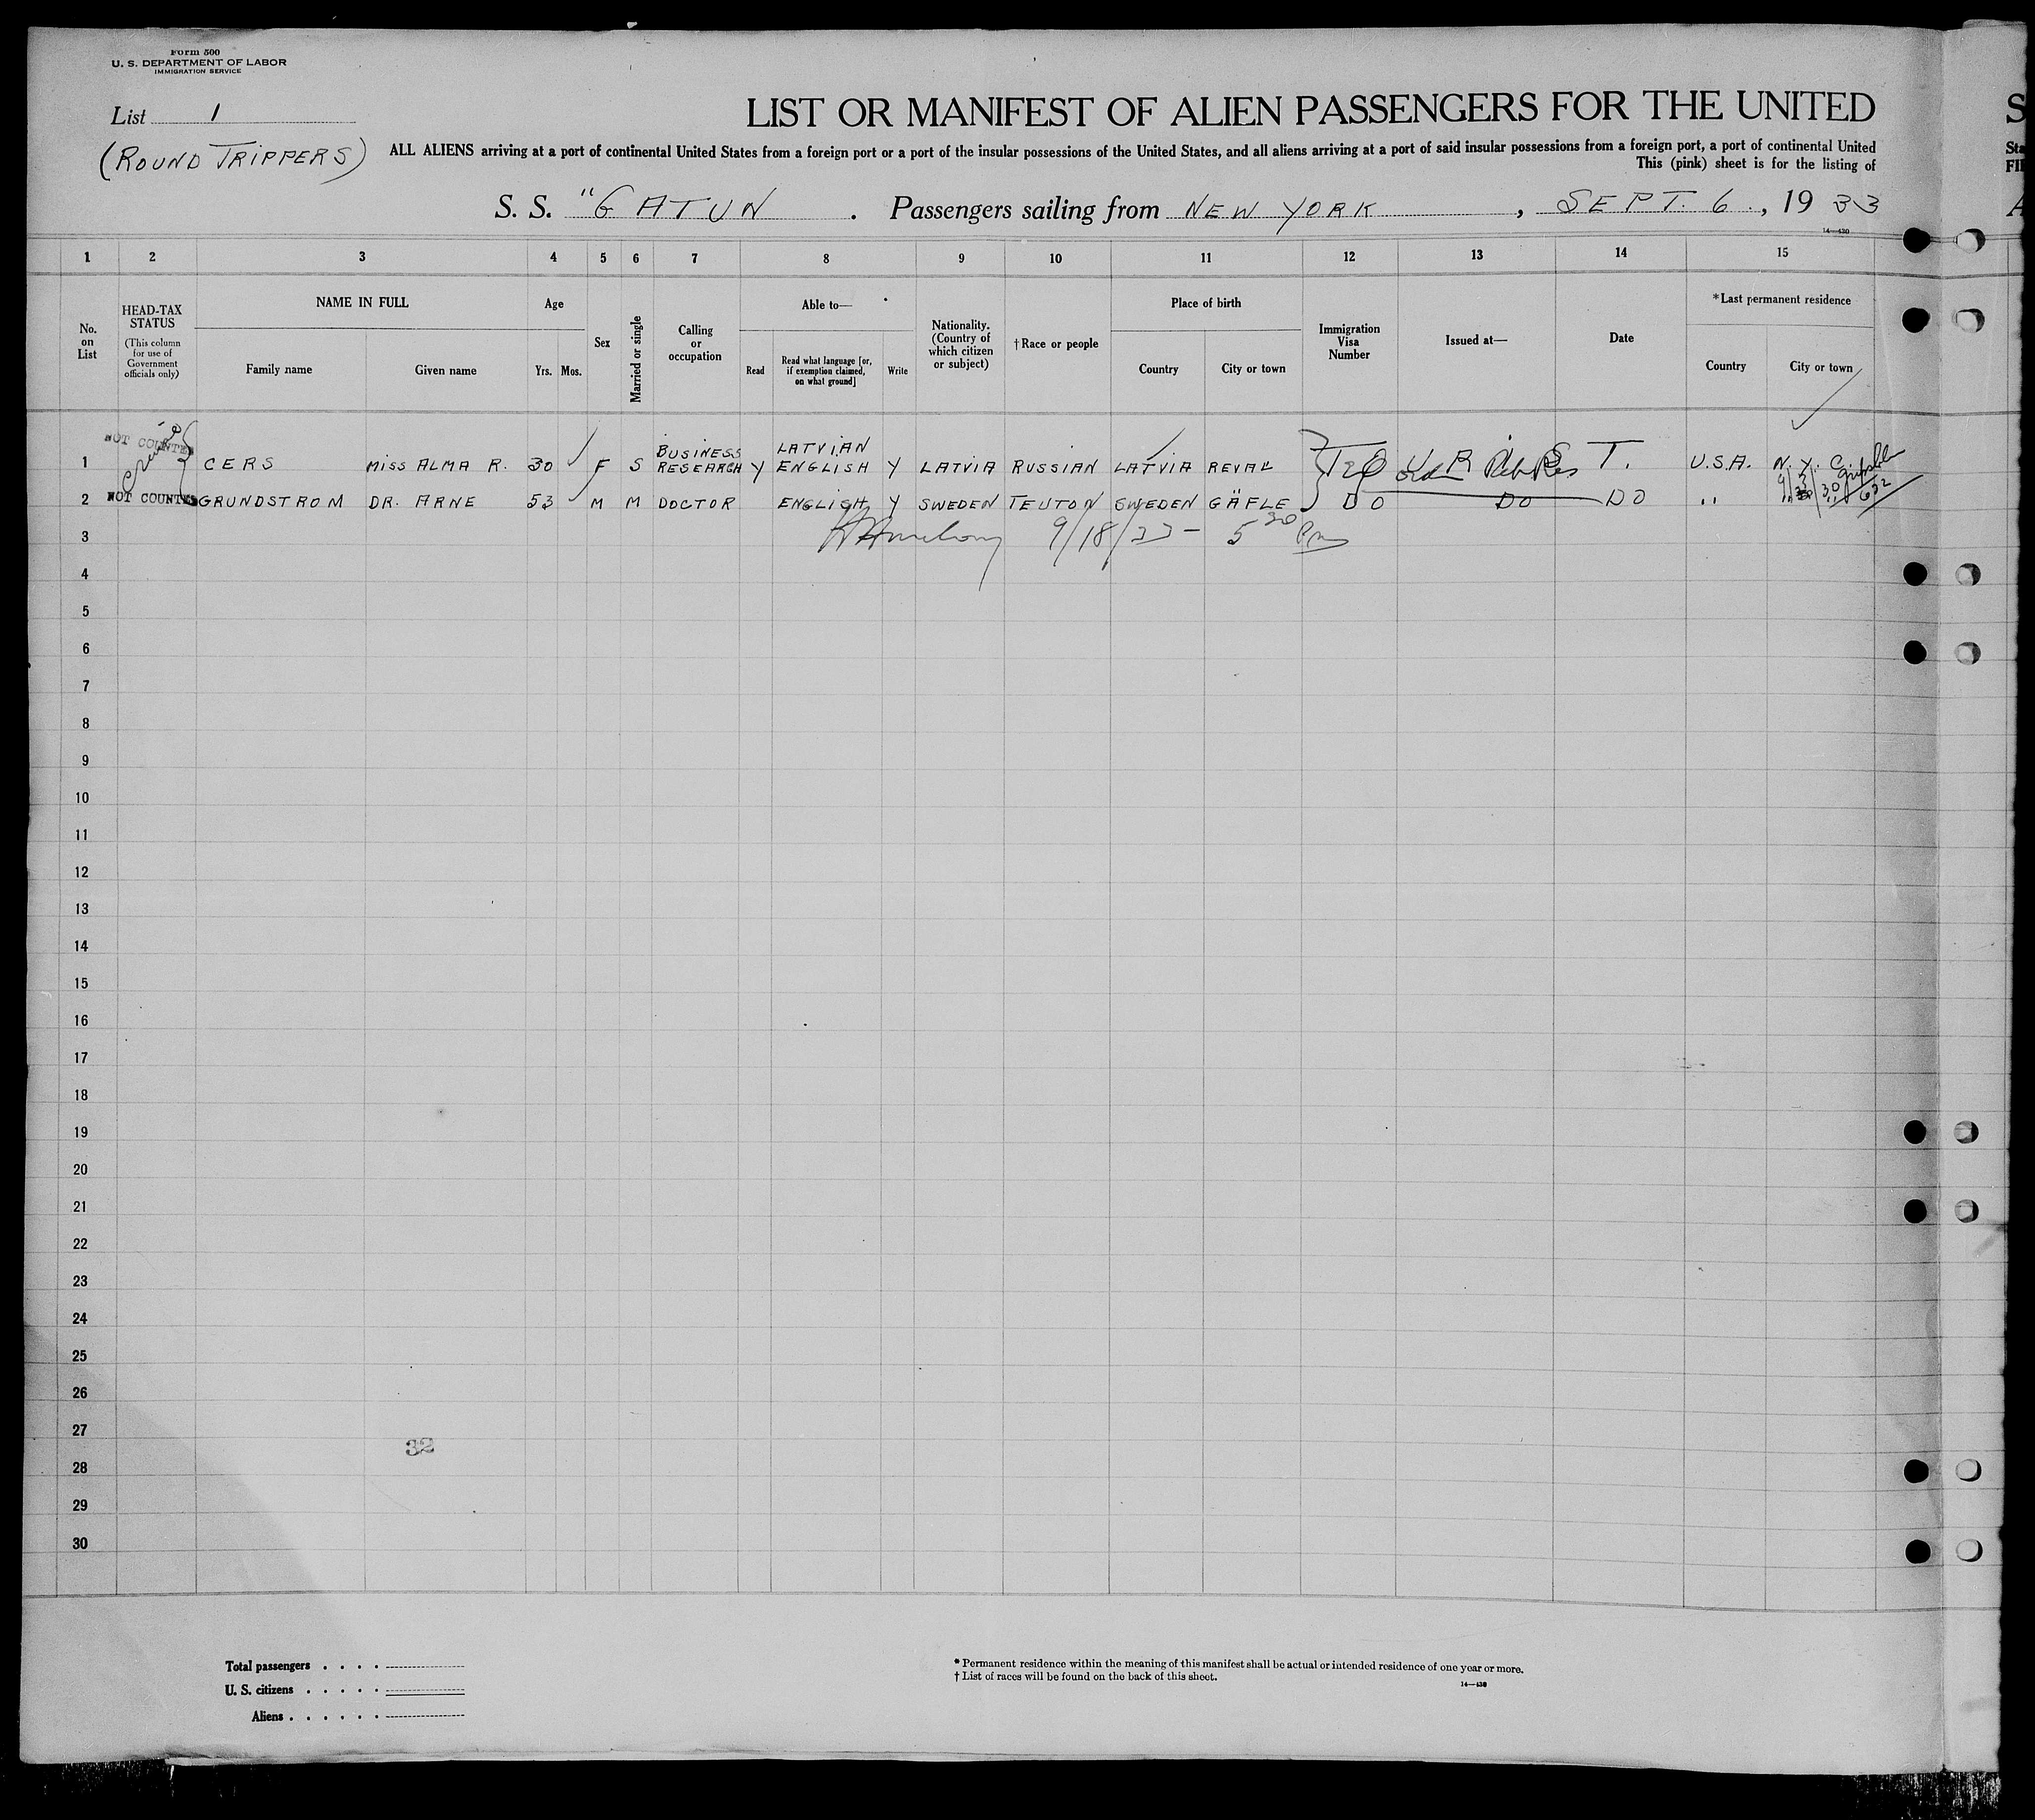 Form 500
U. S. DEPARTMENT OF LABOR
IMMIGRATION SERVICE
List 1
(ROUND TRIPPERS)
LIST OR MANIFEST OF ALIEN PASSENGERS FOR THE UNITED
S
ALL ALIENS arriving at a port of continental United States from a foreign port or a port of the insular possessions of the United States, and all aliens arriving at a port of said insular possessions from a foreign port, a port of continental United
Sta
This (pink) sheet is for the listing of
FI
S. S. "GATUN . Passengers sailing from NEW YORK , SEPT. 6 , 19 33
A
1 2 3 4 5 6 7 8 9 10 11 12 13 14 15
No. on List
HEAD-TAX STATUS
(This column for use of Government officials only)
NAME IN FULL
Family name Given name
Age
Yrs. Mos.
Sex
Married or single
Calling or occupation
Able to—
Read
Read what language [or, if exemption claimed, on what ground]
Write
Nationality. (Country of which citizen or subject)
†Race or people
Place of birth
Country City or town
Immigration Visa Number
Issued at—
Date
*Last permanent residence
Country City or town
1 NOT COUNTED CERS MISS ALMA R. 30 F S BUSINESS RESEARCH Y LATVIAN ENGLISH Y LATVIA RUSSIAN LATVIA REVAL T. U.S.A. N. Y. C.
2 NOT COUNTED GRUNDSTROM DR. ARNE 53 M M DOCTOR ENGLISH Y SWEDEN TEUTON SWEDEN GÄFLE DO DO DO " "
3 9/18/33 - 5 30 Pm
4
5
6
7
8
9
10
11
12
13
14
15
16
17
18
19
20
21
22
23
24
25
26
27
32
28
29
30
Total passengers . . . .
U. S. citizens . . . . .
Aliens . . . . . .
* Permanent residence within the meaning of this manifest shall be actual or intended residence of one year or more.
† List of races will be found on the back of this sheet.
14—430